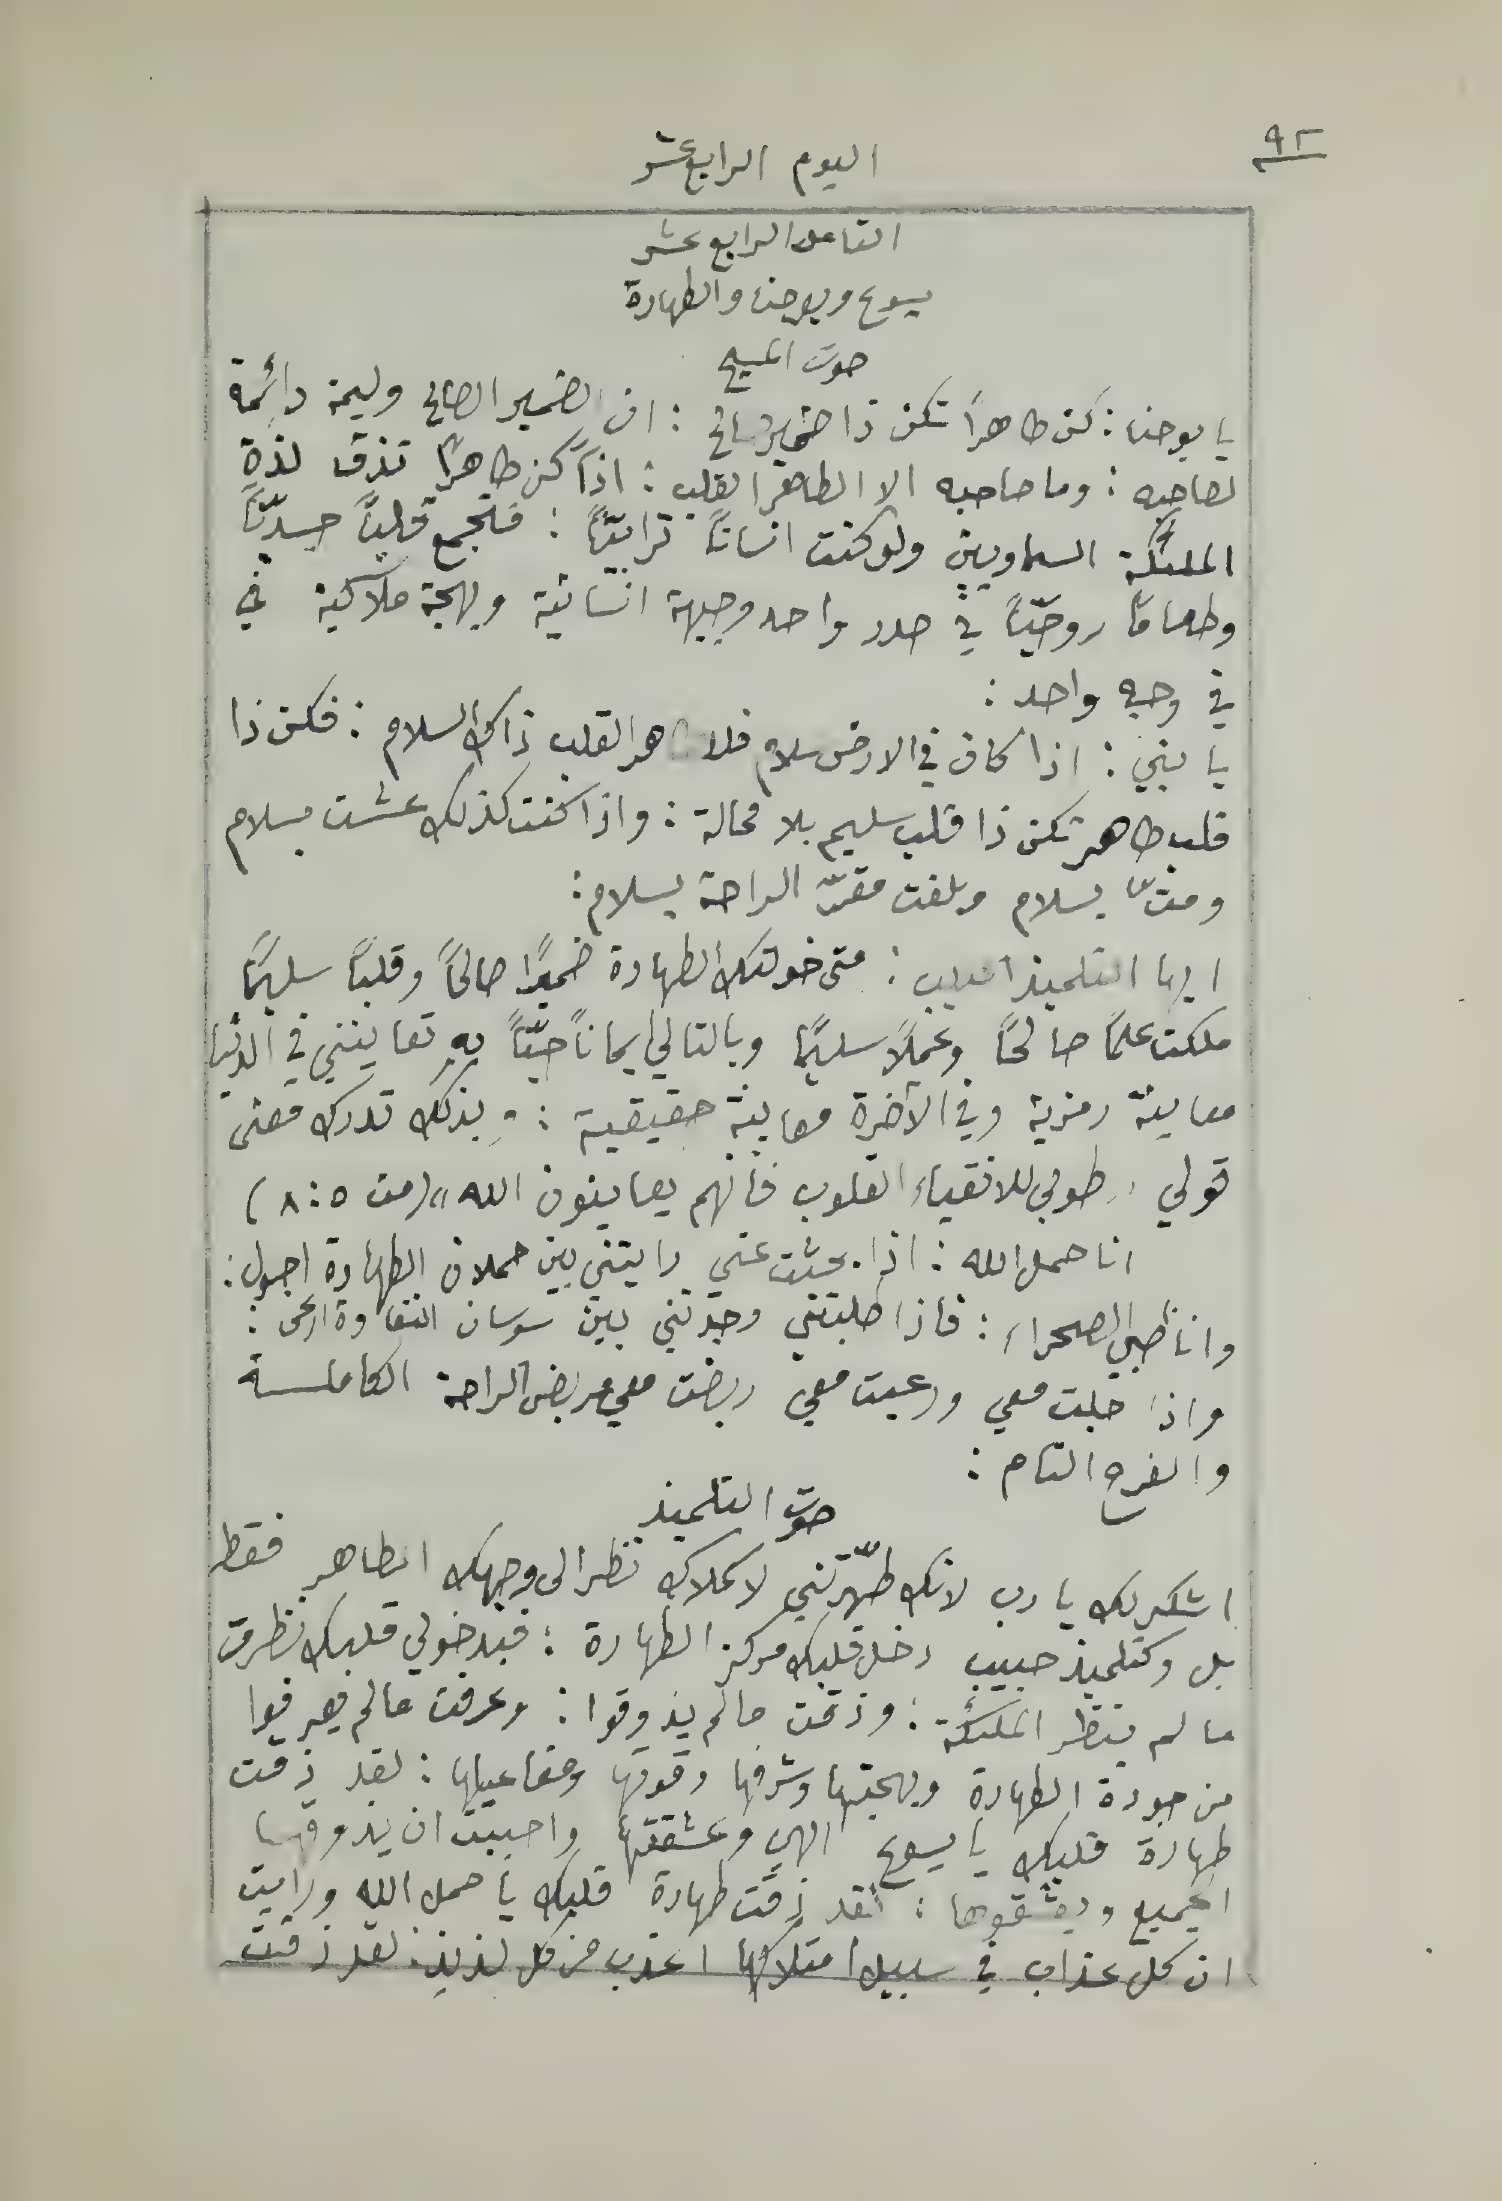 ٩٢
اليوم الرابع عشر
التامل الرابع عشر
يسوع ويوحنا والطهارة
صوت المسيح
يا يوحنا : كن طاهراً تكن ذا ضمير صالح : ان الضمير الصالح وليمة دائمة
لصاحبه : وما صاحبه الا الطاهر القلب : اذاً كن طاهراً تذق لذة
الملئكة السماويين ولو كنت انساناً ترابيّاً : فتجمع قلباً جسديّاً
وطعاماً روحيّاً في صدر واحد وجبهة انسانية وبهجة ملاكية في
في وجه واحد :
يا بنيّ : اذا كان في الارض سلام فللطاهر القلب ذاك السلام : فكن ذا
قلب طاهر تكن ذا قلب سليم بلا محالة : واذا كنت كذلك عشت بسلام
ومتّ بسلام وبلغت مقرّ الراحة بسلام :
ايها التلميذ الحبيب : متى خولتك الطهارة ضميراً صالحاً وقلباً سليماً
ملكت علماً صالحاً وعملاً سليماً وبالتالي ايماناً حيّاً به تعاينني في الدنيا
معاينة رمزية وفي الآخرة معاينة حقيقية : وبذلك تدرك معنى
قولي " طوبى للانقياء القلوب فانهم يعاينون الله " (مت ٥ : ٨)
انا حمل الله : اذا بحثت عني رايتني بين حملان الطهارة اجول :
وانا ظبي الصحراء : فاذا طلبتني وجدتني بين سوسان النقاوة ارعى :
واذا جلت معي ورعيت معي ربضت معي مربض الراحة الكاملة
والفرح التام :
صوت التلميذ
اشكر لك يا رب لانك طهّرتني لا كملاك نظر الى وجهك الطاهر فقط
بل وكتلميذ حبيب دخل قلبك مركز الطهارة : فبدخولي قلبك نظرت
ما لم ينظر الملئكة : وذقت ما لم يذوقوا : وعرفت ما لم يعرفوا
من جودة الطهارة وبهجتها وشرفها وقوتها ومفاعيلها : لقد ذقت
طهارة قلبك يا يسوع الهي وعشقتها واحببت ان يذوقها
الجميع ويعشقوها : لقد ذقت طهارة قلبك يا حمل الله ورايت
ان كل عذاب في سبيل امتلاكها اعذب من كل لذيذ : لقد ذقت